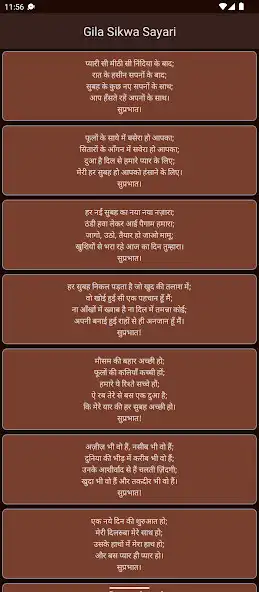 11:56
Gila Sikwa Sayari
प्यारी सी मीठी सी निंदिया के बाद;
रात के हसीन सपनों के बाद;
सुबह के कुछ नए सपनों के साथ;
आप हँसते रहें अपनों के साथ।
सुप्रभात।
फूलों के साये में बसेरा हो आपका;
सितारों के आँगन में सवेरा हो आपका;
दुआ है दिल से हमारे प्यार के लिए;
मेरी हर सुबह हो आपको हंसाने के लिए।
सुप्रभात!
हर नई सुबह का नया नया नज़ारा;
ठंडी हवा लेकर आई पैगाम हमारा;
जागो, उठो, तैयार हो जाओ मामू;
खुशियों से भरा रहे आज का दिन तुम्हारा।
सुप्रभात!
हर सुबह निकल पड़ता है जो खुद की तलाश में;
वो खोई हुई सी एक पहचान हूँ मैं;
ना आँखों में ख्वाब है ना दिल में तमन्ना कोई;
अपनी बनाई हुई राहों से ही अनजान हूँ मैं।
सुप्रभात!
मौसम की बहार अच्छी हो;
फूलों की कलियाँ कच्ची हों;
हमारे ये रिश्ते सच्चे हों;
ऐ रब तेरे से बस एक दुआ है;
कि मेरे यार की हर सुबह अच्छी हो।
सुप्रभात!
अज़ीज भी वो हैं, नसीब भी वो हैं;
दुनिया की भीड़ में करीब भी वो हैं;
उनके आशीर्वाद से है चलती ज़िंदगी;
खुदा भी वो हैं और तकदीर भी वो हैं।
सुप्रभात!
एक नये दिन की शुरुआत हो;
मेरी दिलरुबा मेरे साथ हो;
उसके हाथों में मेरा हाथ हो;
और बस प्यार ही प्यार हो।
सुप्रभात!